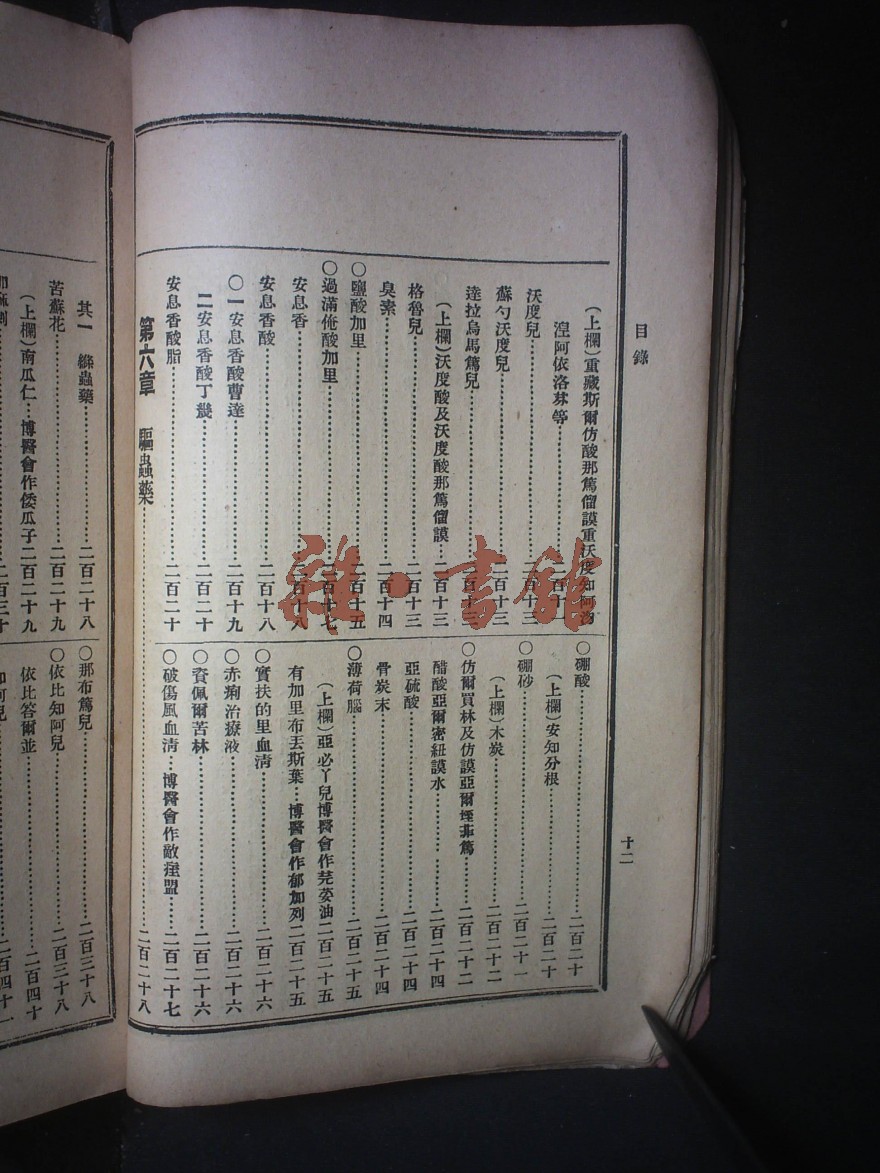 目錄
十二
(上欄)重蔵斯爾仿酸那篤偺謨重沃度知阿
湟阿依洛菻等
沃度兒……二百十三
蘇勺沃度兒……二百十三
達拉烏馬篤兒……二百十三
(上欄)沃度酸及沃度酸那篤偺謨…二百十三
格魯兒……二百十三
臭素……二百十四
○鹽酸加里……二百十五
○過滿俺酸加里……二百十七
安息香……二百十八
安息香酸……二百十八
○一安息香酸曹達……二百十九
二安息香酸丁幾……二百二十
安息香酸脂……二百二十
○硼酸……二百二十
(上欄)安知分根……二百二十
○硼砂……二百二十一
(上欄)木炭……二百二十二
○仿爾買林及仿謨亞爾垤菲篤……二百二十二
醋酸亞爾密紐謨水……二百二十四
亞硫酸……二百二十四
骨炭末……二百二十四
○薄荷腦……二百二十五
(上欄)亞必丫兒博醫會作芫荽油二百二十五
有加里布丟斯葉…博醫會作郁加列二百二十五
○實扶的里血清……二百二十六
○赤痢治療液……二百二十六
○賚佩爾苦林……二百二十六
○破傷風血清…博醫會作敵痙盟……二百二十七
第六章 驅蟲藥……二百二十八
其一 絛蟲藥……二百二十八
苦蘇花……二百二十九
(上欄)南瓜仁…博醫會作倭瓜子二百二十九
二百三十
○那布篤兒……二百三十八
○依比知阿兒……二百三十八
依比答爾並……二百四十
二百四十一
雜·書館